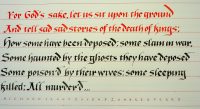 For God's sake, let us sit upon the ground
And tell sad stories of the death of kings;
How some have been deposed; some slain in war,
Some haunted by the ghosts they have deposed
Some poison'd by their wives; some sleeping
killed; All murder'd...